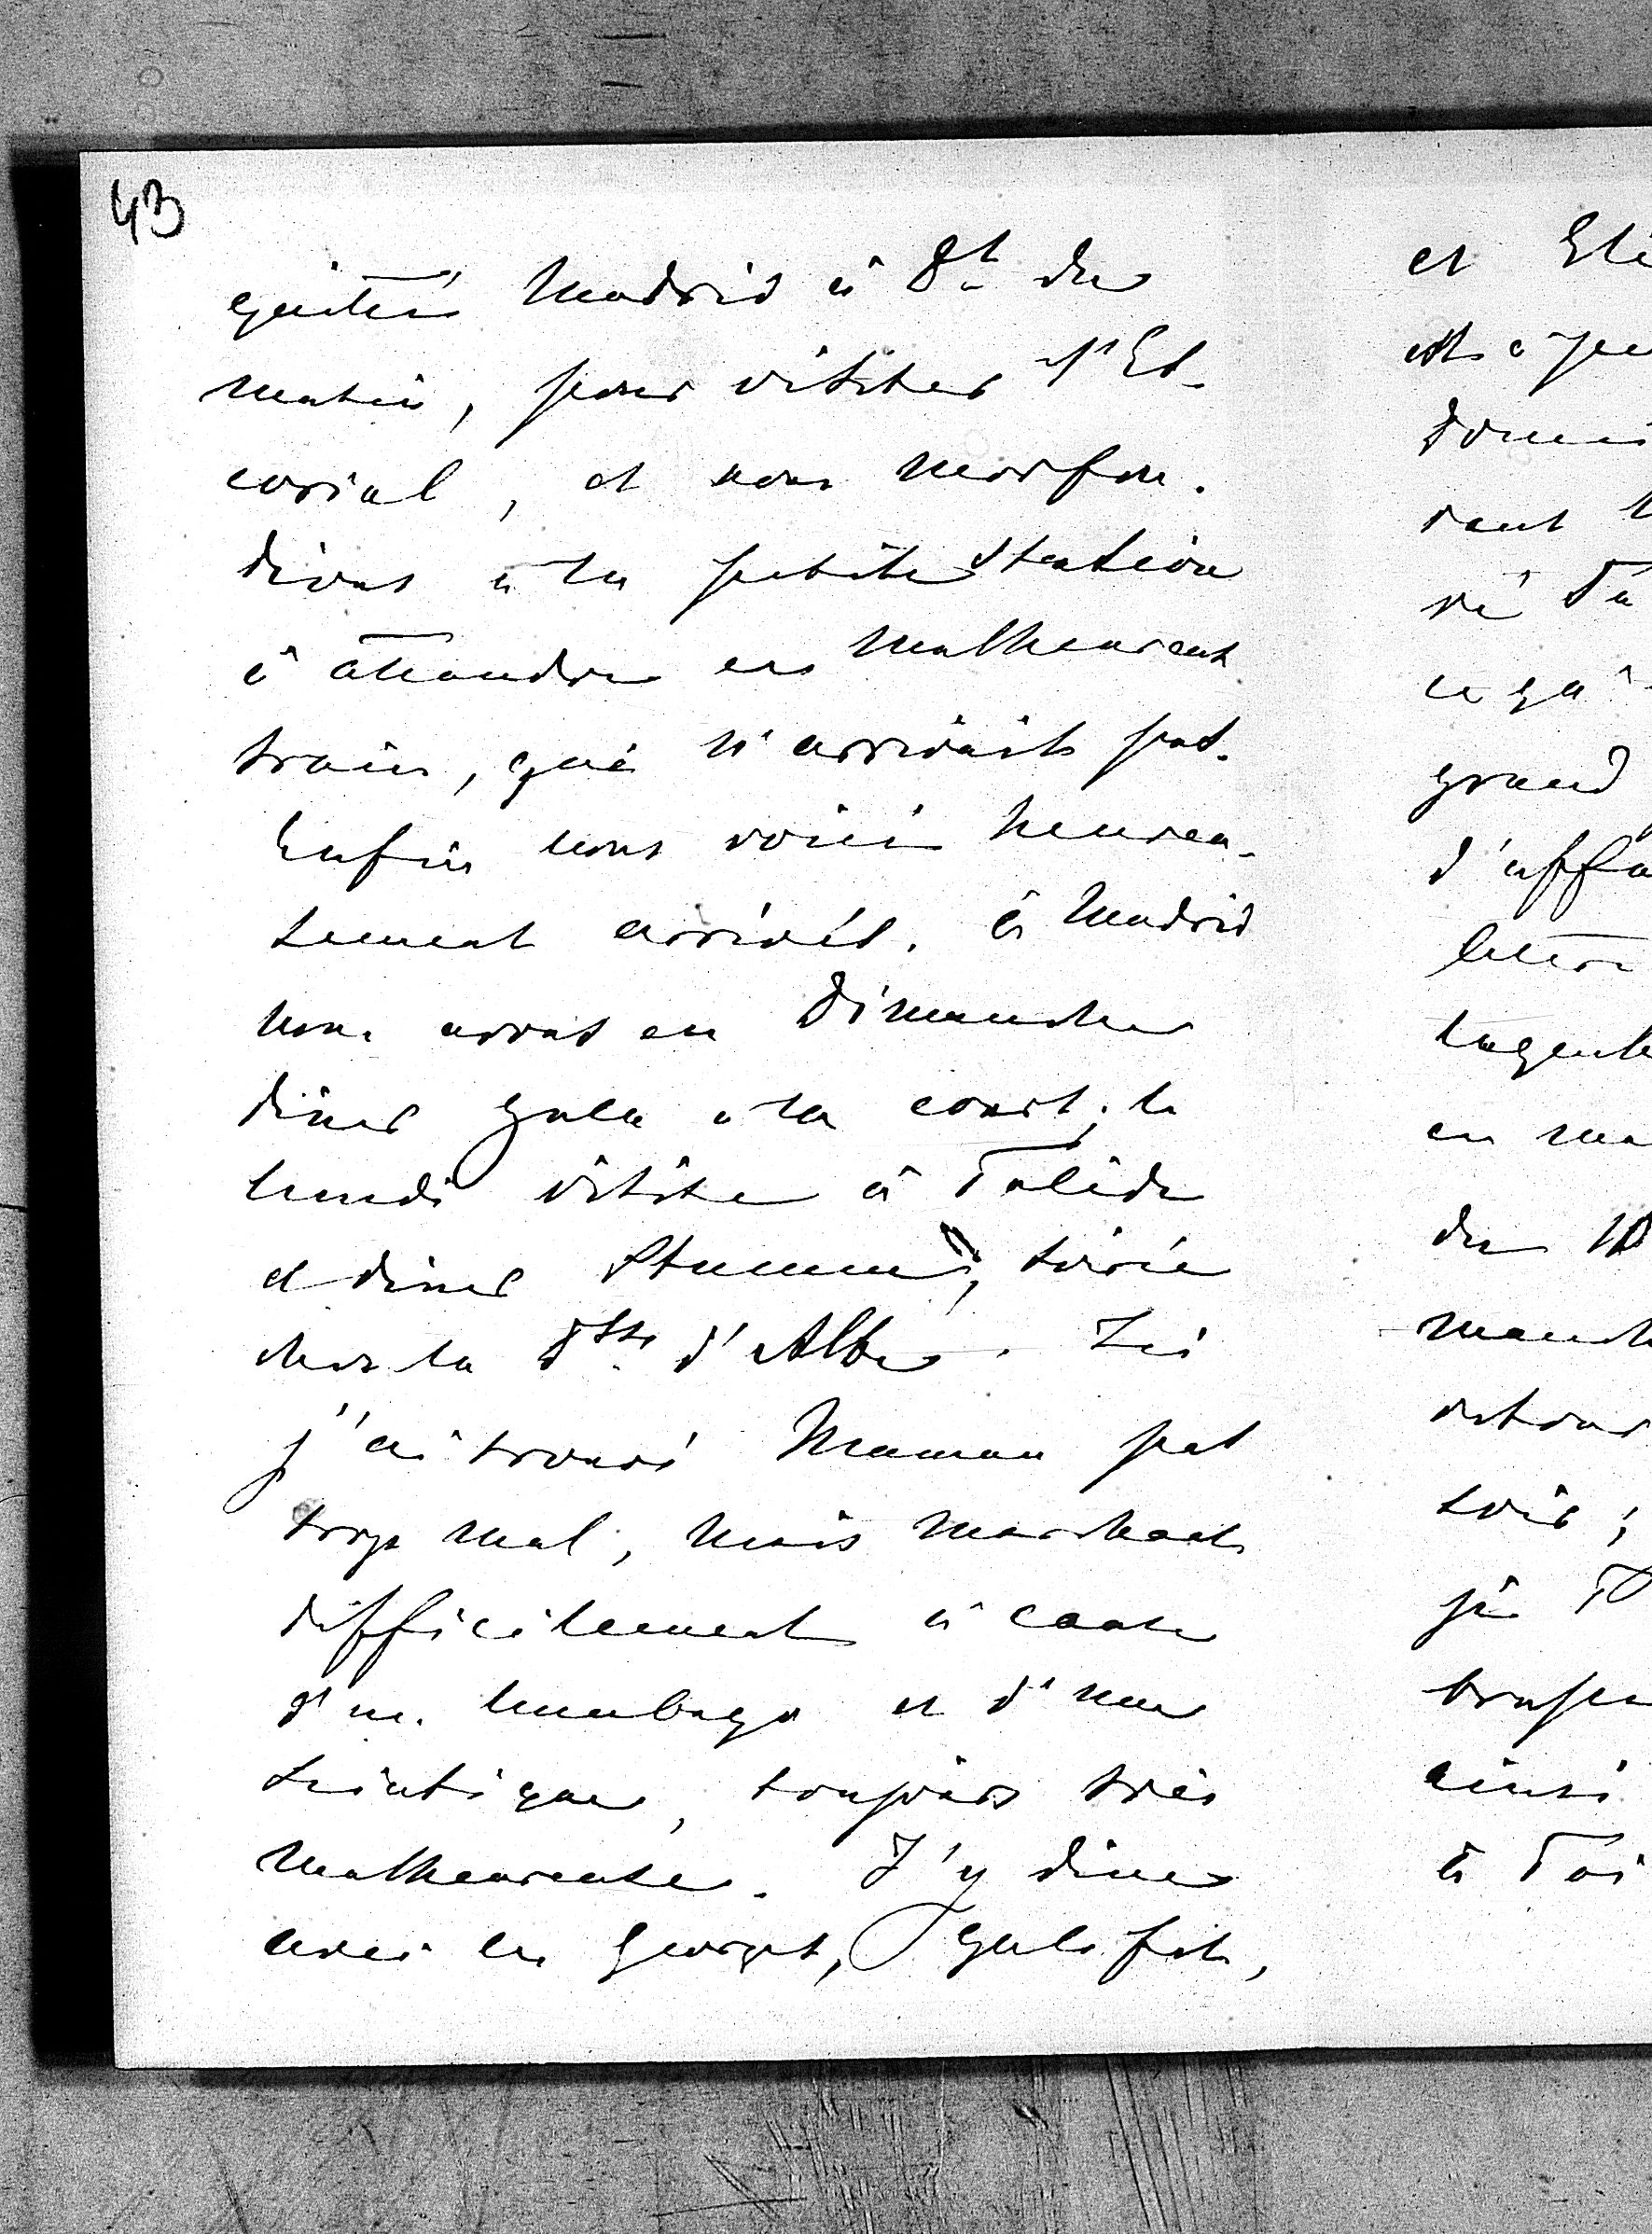 43
quitté Madrid à 8h du
matin, pour visiter l'Es-
corial, et nous morfon-
dions à la petite station
à attendre ce malheureux
train, qui n'arrivait pas.
Enfin nous voici heureu-
sement arrivés. à Madrid
nous avons eu Dimanche
diner gala à la court; le
lundi visite à Tolède
et diner Stumm, soirée
chez la Dsse d'Albe. Ici
j'ai trouvé Maman pas
trop mal, mais marchant
difficilement à cause
d'un lumbago et d'une
sciatique, toujours très
malheureuse. J'y dine
avec les Georges,
et
dant
ce qu'
grand
d'affa
lettre
en ma
du 10
manch
retour
soir;
ainsi
à Toi